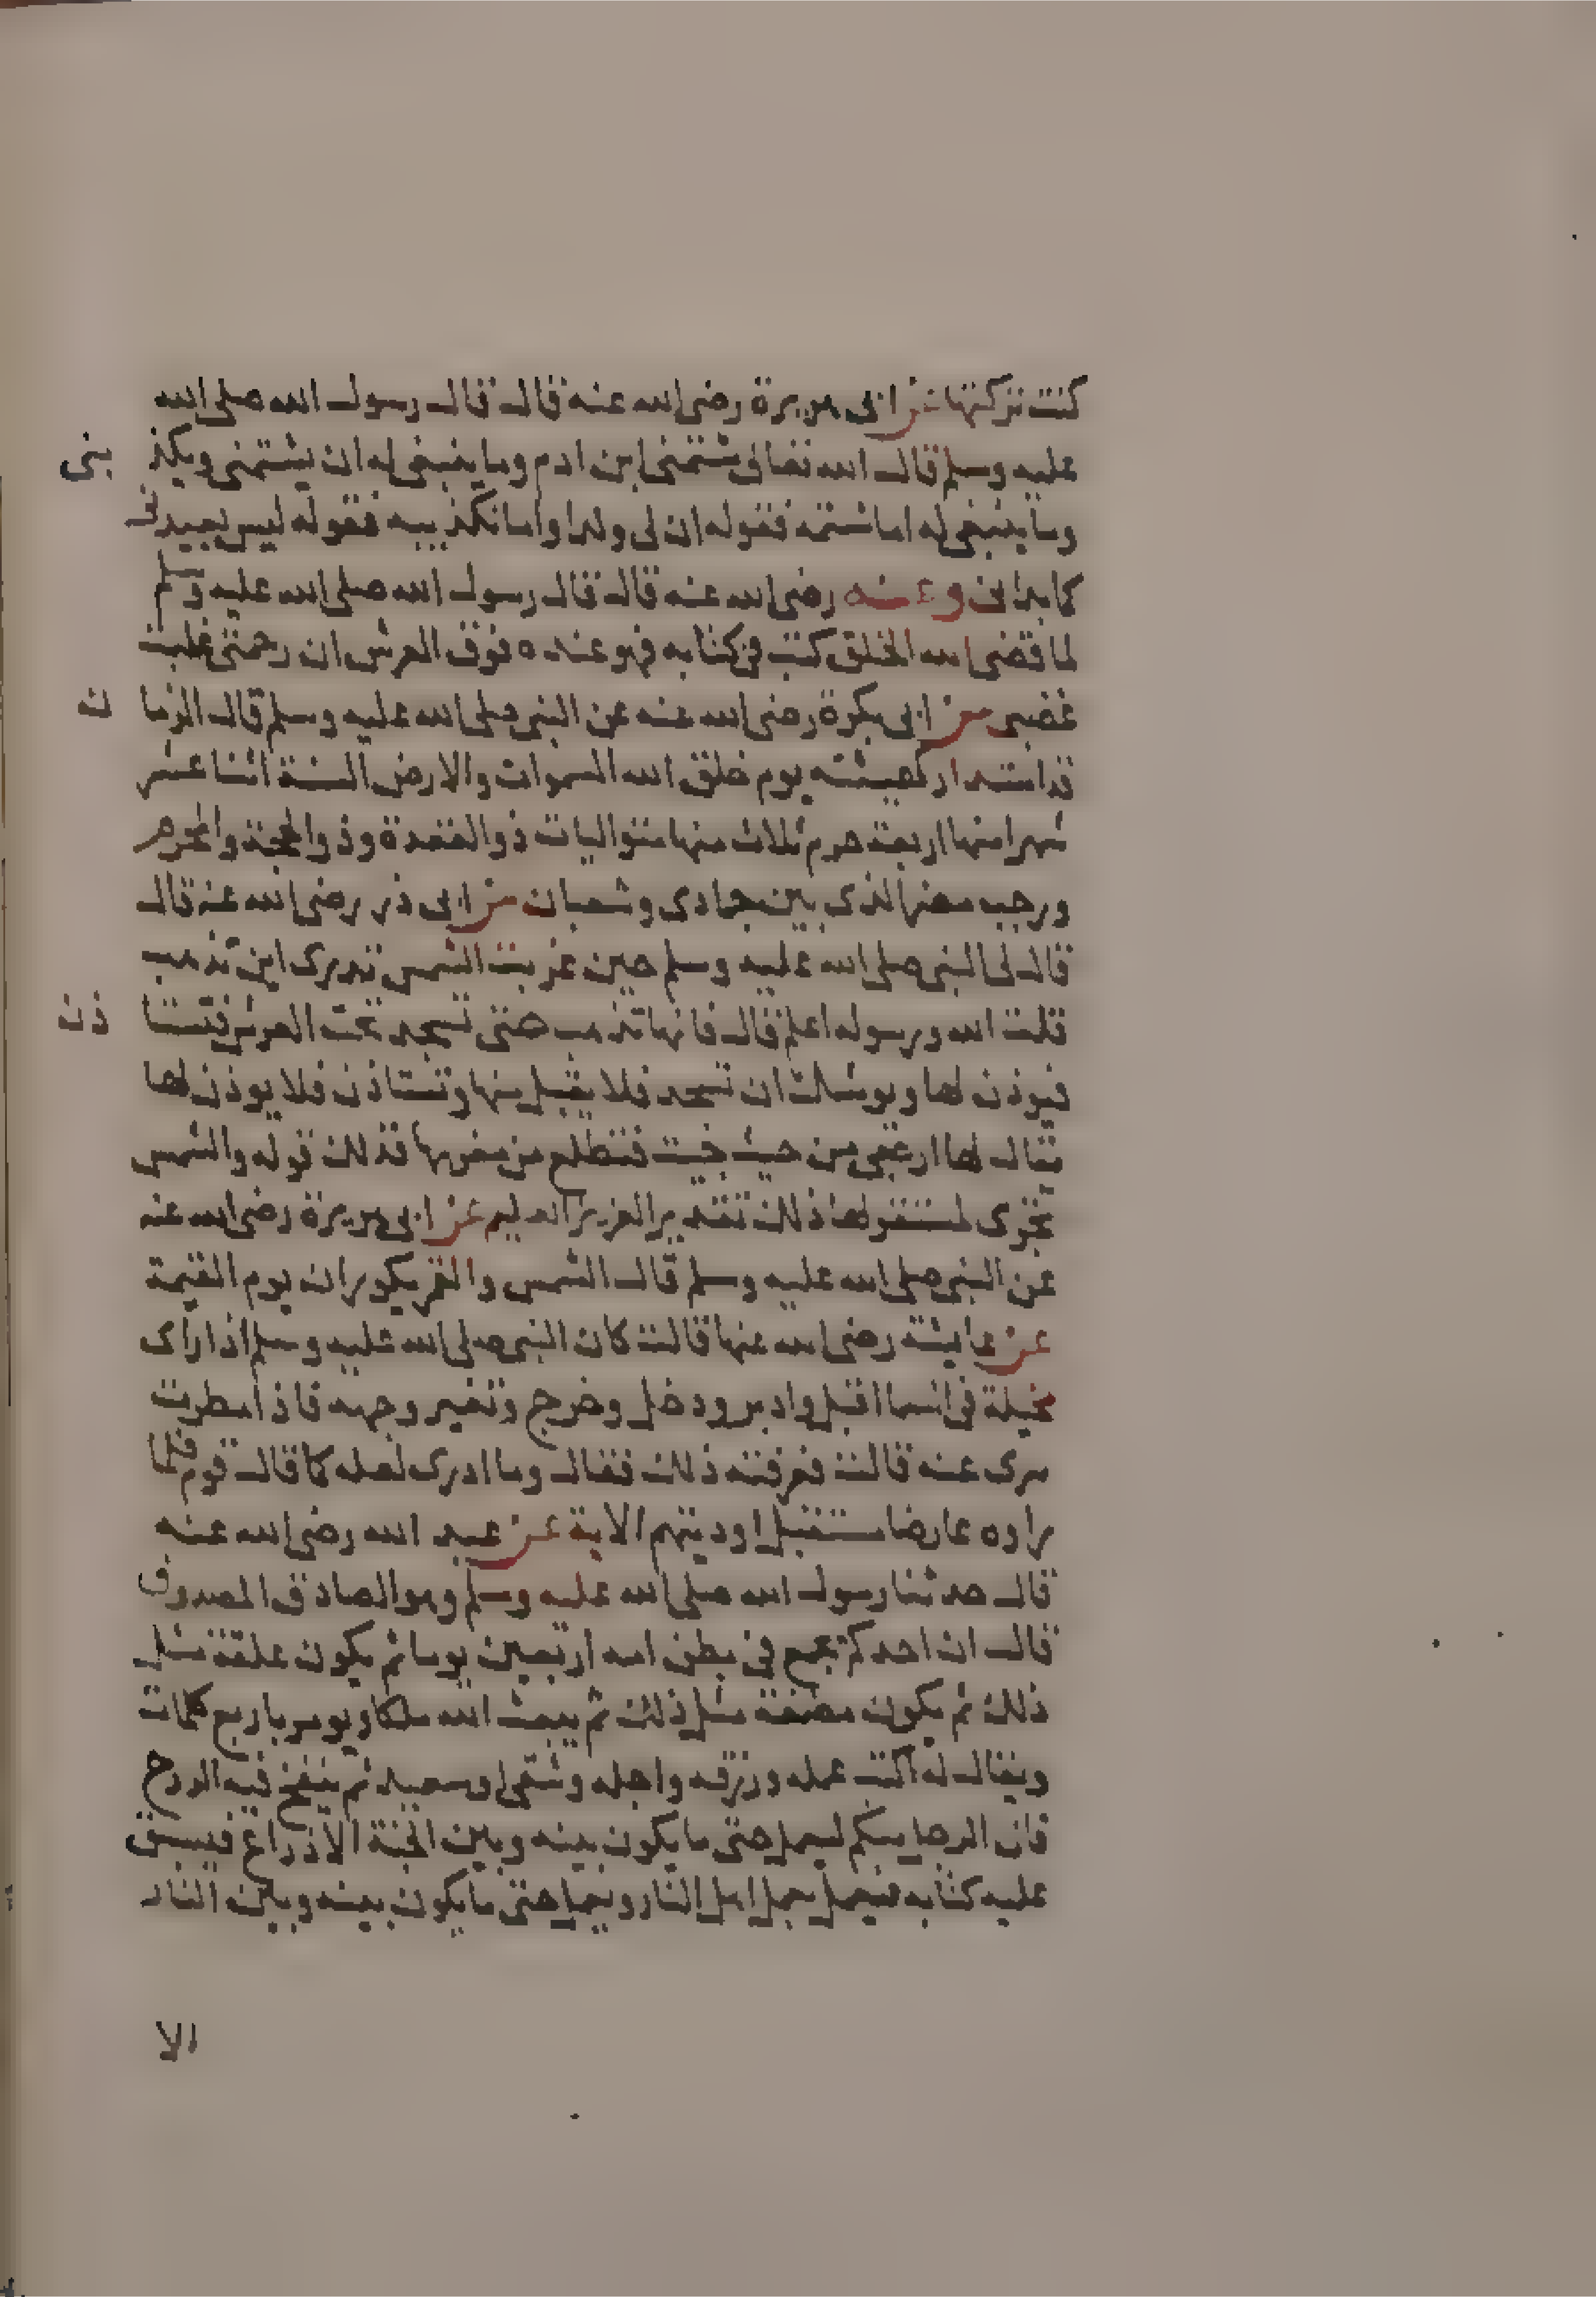 كنت تركتها عن ابى هريرة رضى الله عنه قال قال رسول الله صلى الله
عليه وسلم قال الله تعالى شتمنى ابن ادم وما ينبغى له ان يشتمنى ويكذ بنى
وما ينبغى له اما شتمه فقوله ان لى ولدا واما تكذيبه فقوله ليس يعيدنى
كما بدانى وعنه رضى الله عنه قال قال رسول الله صلى الله عليه وسلم
لما قضى الله الخلق كتب فى كتابه فهو عنده فوق العرش ان رحمتى غلبت
غضبى عن ابى بكرة رضى الله عنه عن النبى صلى الله عليه وسلم قال الزما ن
قد استدار كهيئته يوم خلق الله السموات والارض السنة اثنا عشر
شهرا منها اربعة حرم ثلاث منها متواليات ذو القعدة وذو الحجة والمحرم
ورجب مضر الذى بين جمادى وشعبان عن ابى ذر رضى الله عنه قال
قال لى النبى صلى الله عليه وسلم حين غربت الشمس تدرى اين تذهب
قلت الله ورسوله اعلم قال فانها تذهب حتى تسجد تحت العرش فتستا ذن
فيوذن لها ويوشك ان تسجد فلا يقبل منها وتستاذن فلا يوذن لها
يقال لها ارجعى من حيث جيت فتطلع من مغربها فذلك قوله والشمس
تجرى لمستقر لها ذلك تقدير العزيز العليم عن ابى هريرة رضى الله عنه
عن النبى صلى الله عليه وسلم قال الشمس والقمر يكوران يوم القيمة
عن عايشة رضى الله عنها قالت كان النبى صلى الله عليه وسلم اذا راى
مخيلة فى السما اقبل وادبر ودخل وخرج وتغير وجهه فاذ امطرت
سرى عنه قالت فعرفته ذلك فقال وما ادرى لعله كما قال قوم فلما
راوه عارضا مستقبل اوديتهم الاية عن عبد الله رضى الله عنه
قال حدثنا رسول الله صلى الله عليه وسلم وهو الصادق المصدوق
قال ان احدكم يجمع فى بطن امه اربعين يوما ثم يكون علقة مثل
ذلك ثم يكون مضغة مثل ذلك ثم يبعث الله ملكا ويومر باربع كلمات
ويقال له اكتب عمله ورزقه واجله وشقى او سعيد ثم ينفخ فيه الروح
فان الرجل منكم ليعمل حتى ما يكون بينه وبين الجنة الا ذراع فيسبق
عليه كتابه فيعمل بعمل اهل النار ويعمل حتى ما يكون بينه وبين النار
الا